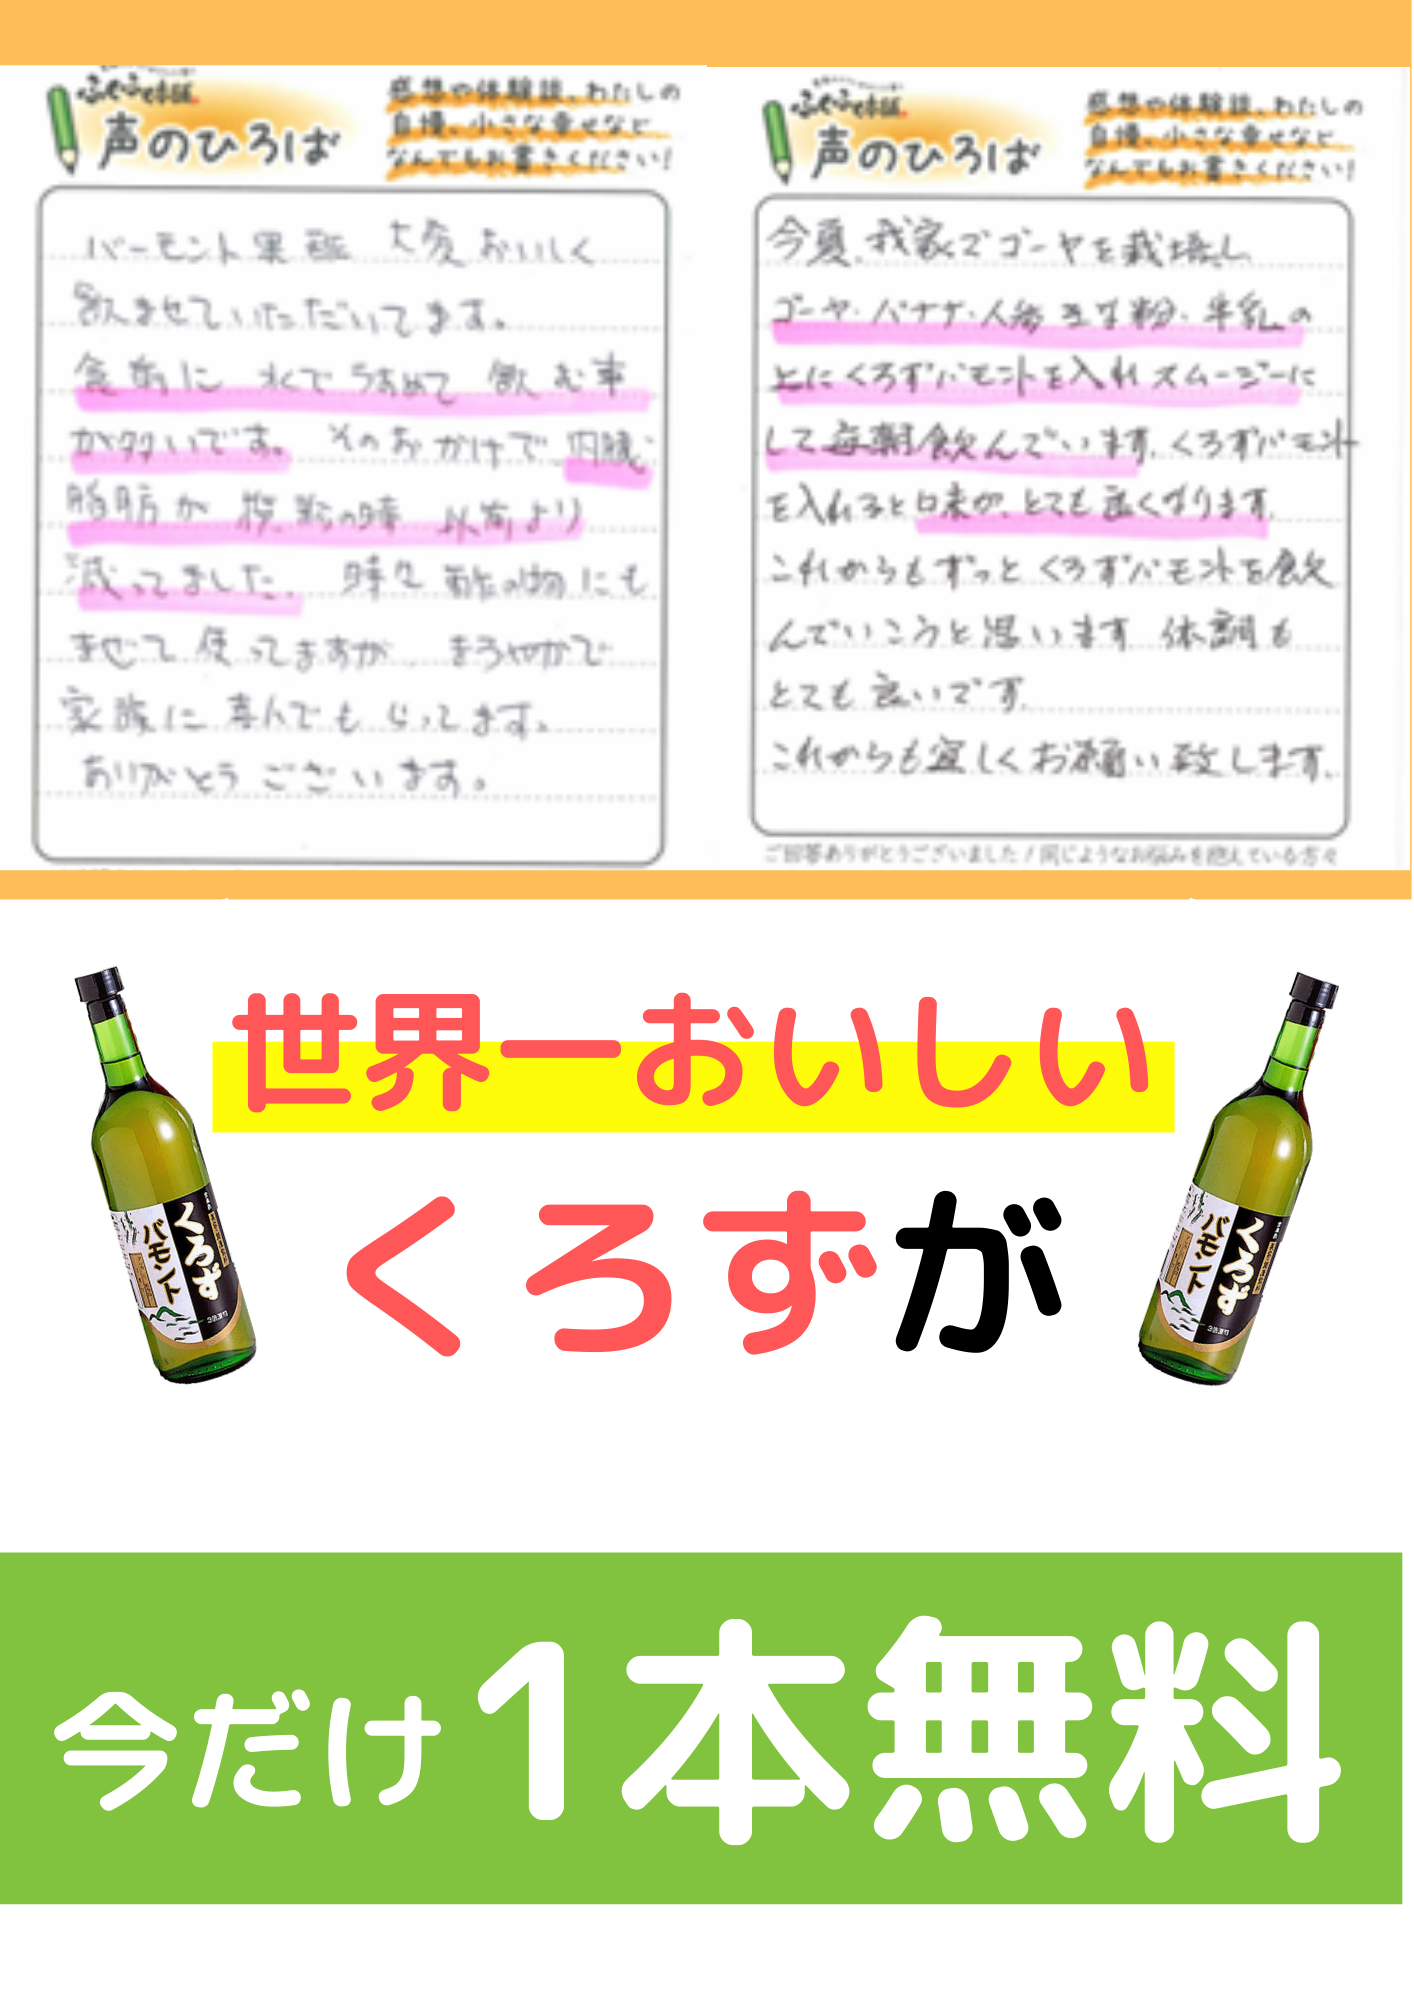 声のひろば
感想や体験談、わたしの
自慢、小さな幸せなど
なんでもお書きください!
バーモント果酢 大変おいしく
飲ませていただいてます。
食前に 水でうすめて 飲む事
が多いです。そのおかけで 内臓
脂肪が 検診の時 以前より
減ってました。時々 酢の物にも
まぜて 使ってますが、まろやかで
家族に 喜んでもらってます。
ありがとうございます。
声のひろば
感想や体験談、わたしの
自慢、小さな幸せなど
なんでもお書きください!
今夏、我家でゴーヤを栽培し
ゴーヤ・バナナ・人参 きな粉・牛乳の
上にくろずバモントを入れスムージーに
して毎朝飲んでいます。くろずバモント
を入れると口未が、とても良くなります。
これからもずっとくろずバモントを飲
んでいこうと思います 体調も
とても良いです。
これからも宜しくお願い致します。
ご回答ありがとうございました!同じようなお悩みを抱えている方々
世界一おいしい
くろずが
くろず
バモント
くろず
バモント
今だけ1本無料